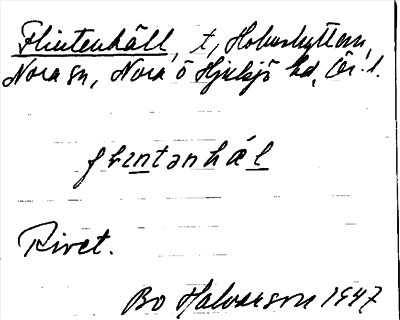 Flintenhäll, t, Holmshyttan,
Nora sn, Nora ö Hjulsjö hd, Ör. l.
flintənhäl
Rivet.
Bo Halvarson 1947